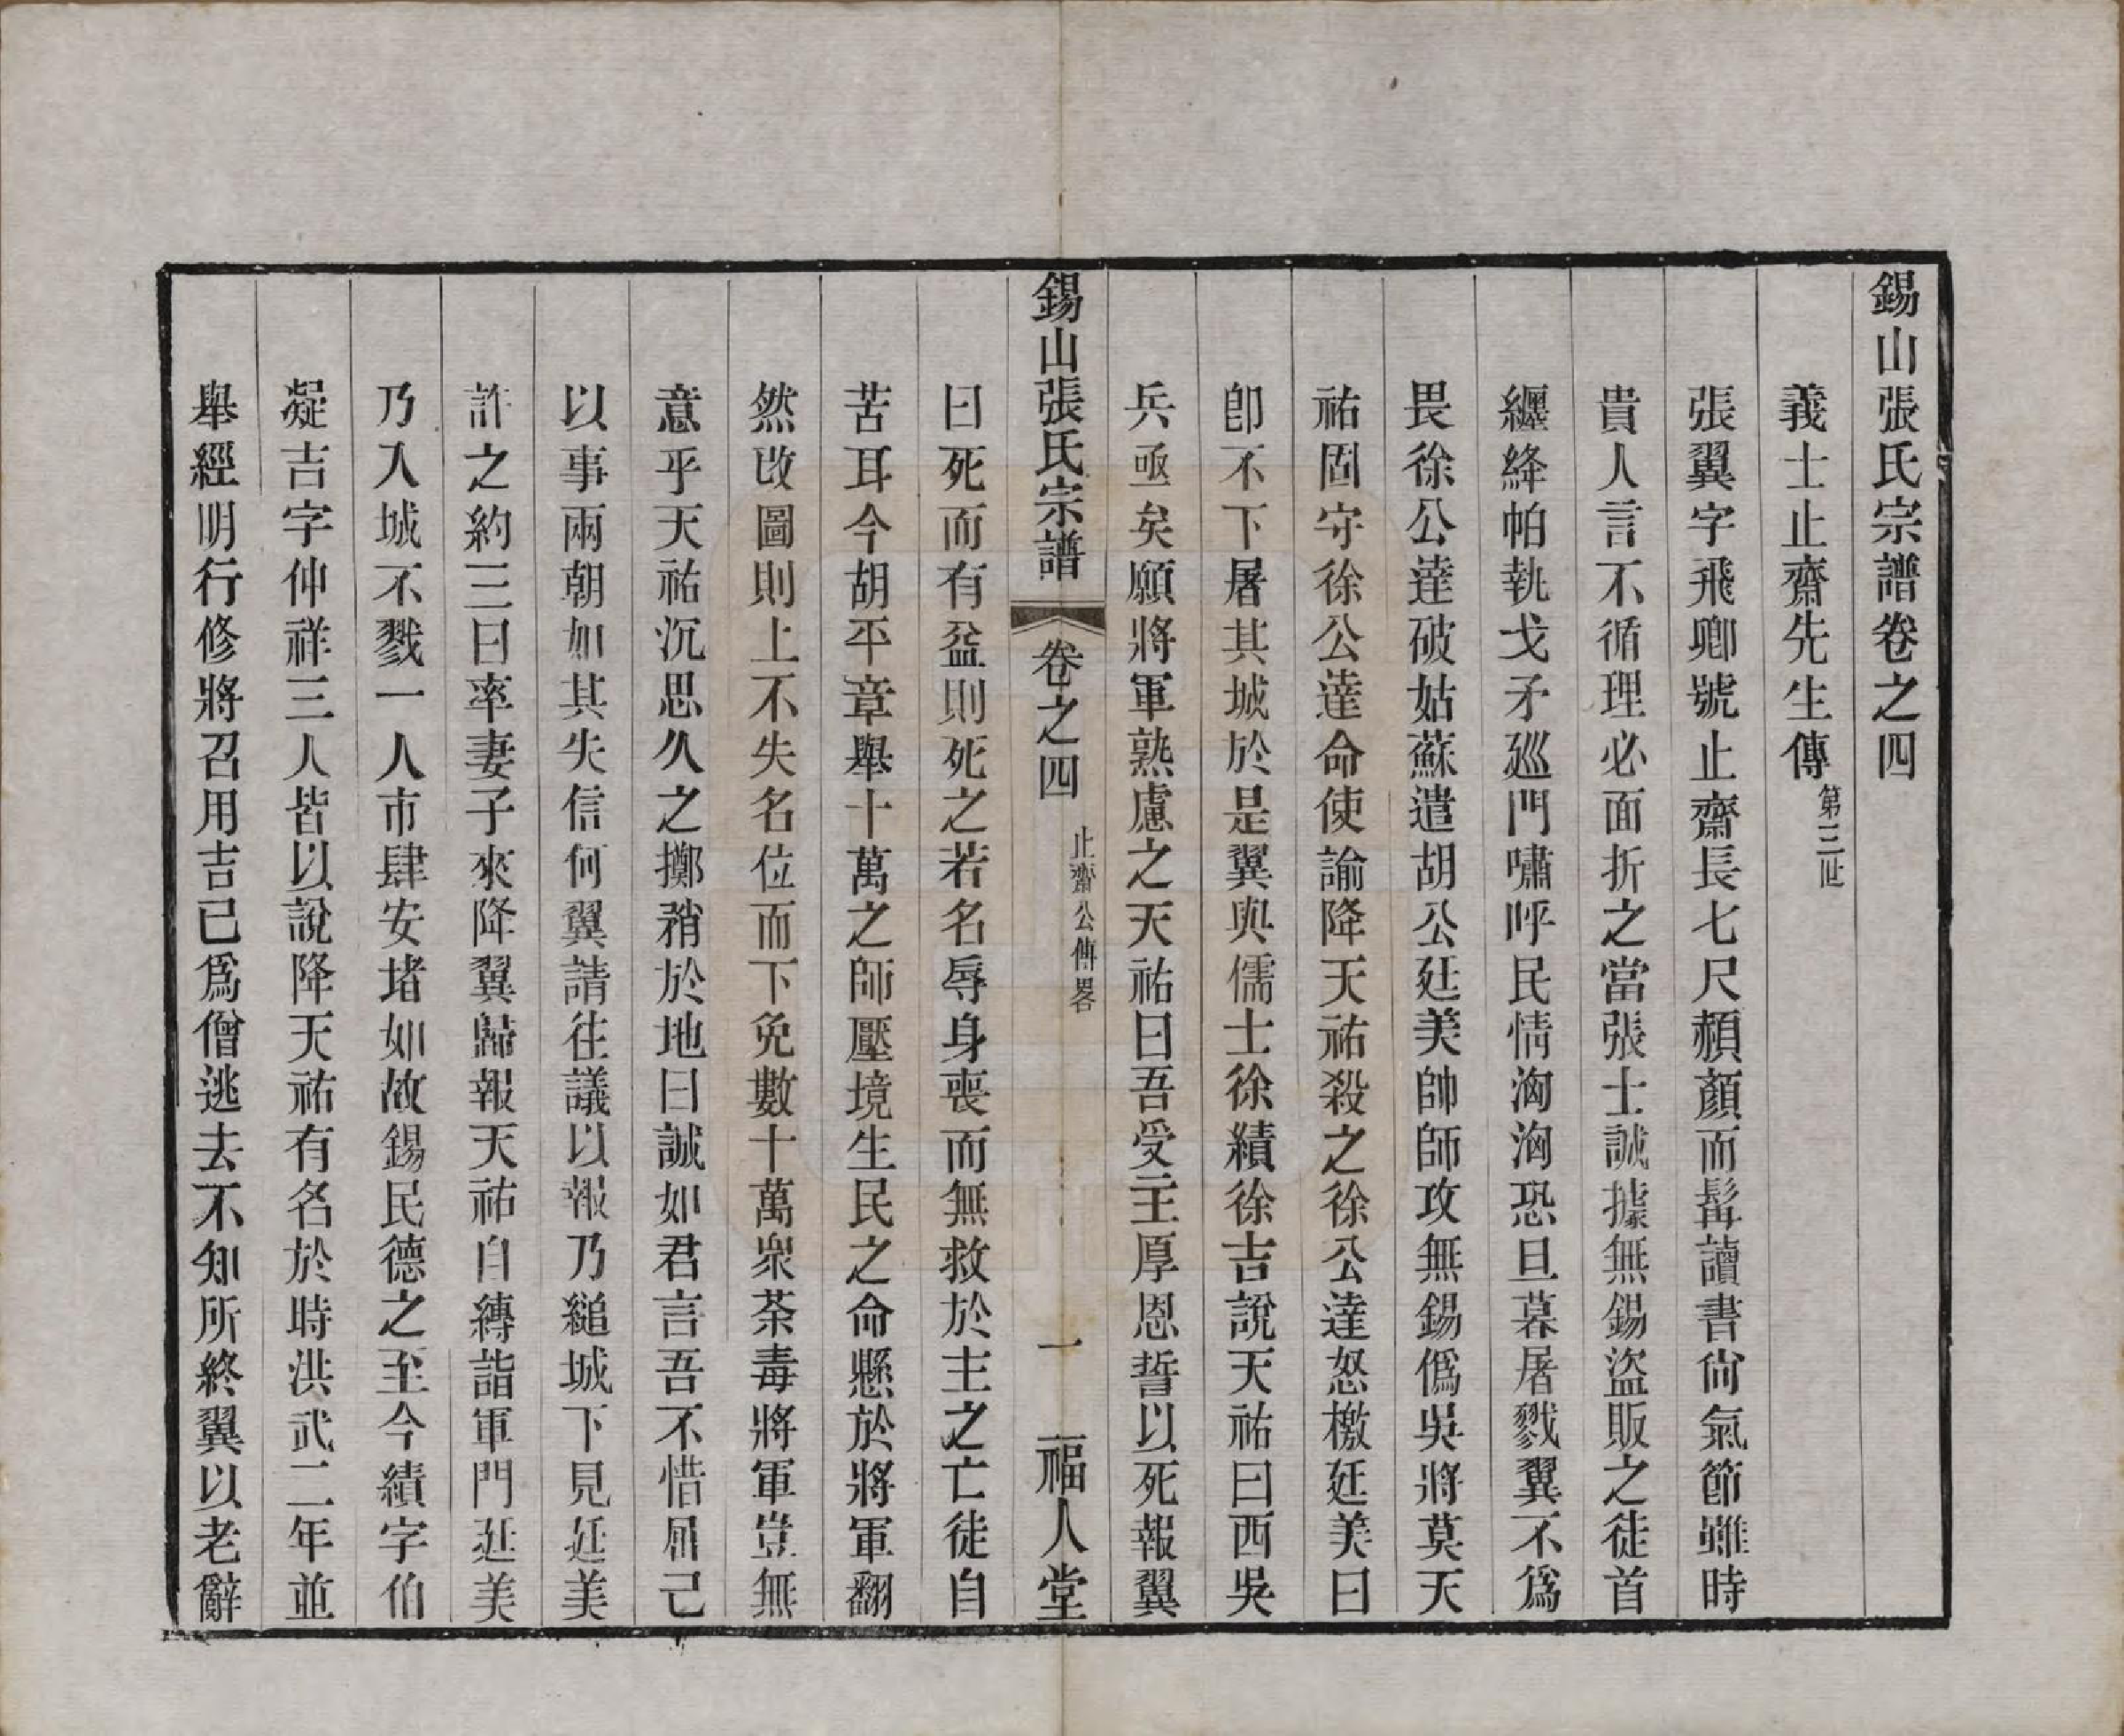 錫山張氏宗譜卷之四
義士止齋先生傳第三世
張翼字飛卿號止齋長七尺頳顏而髯讀書尙氣節雖時
貴人言不循理必面折之當張士誠據無錫盜販之徒首
纏絳帕執戈矛廵門嘯呼民情洶洶恐旦暮屠戮翼不爲
畏徐公達破姑蘇遣胡公廷美帥師攻無錫僞吳將莫天
祐固守徐公達命使諭降天祐殺之徐公達怒檄廷美曰
卽不下屠其城於是翼與儒士徐績徐吉說天祐曰西吳
兵亟矣願將軍熟慮之天祐曰吾受主厚恩誓以死報翼
錫山張氏宗譜 卷之四 止齋公傳畧 一 福人堂
曰死而有益則死之若名辱身喪而無救於主之亡徒自
苦耳今胡平章舉十萬之師壓境生民之命懸於將軍翻
然改圖則上不失名位而下免數十萬衆荼毒將軍豈無
意乎天祐沉思久之擲稍於地曰誠如君言吾不惜屈己
以事兩朝如其失信何翼請往議以報乃縋城下見廷美
許之約三日率妻子來降翼歸報天祐自縛詣軍門廷美
乃入城不戮一人市肆安堵如故錫民德之至今績字伯
凝吉字仲祥三人皆以說降天祐有名於時洪武二年並
舉經明行修將召用吉已爲僧逃去不知所終翼以老辭